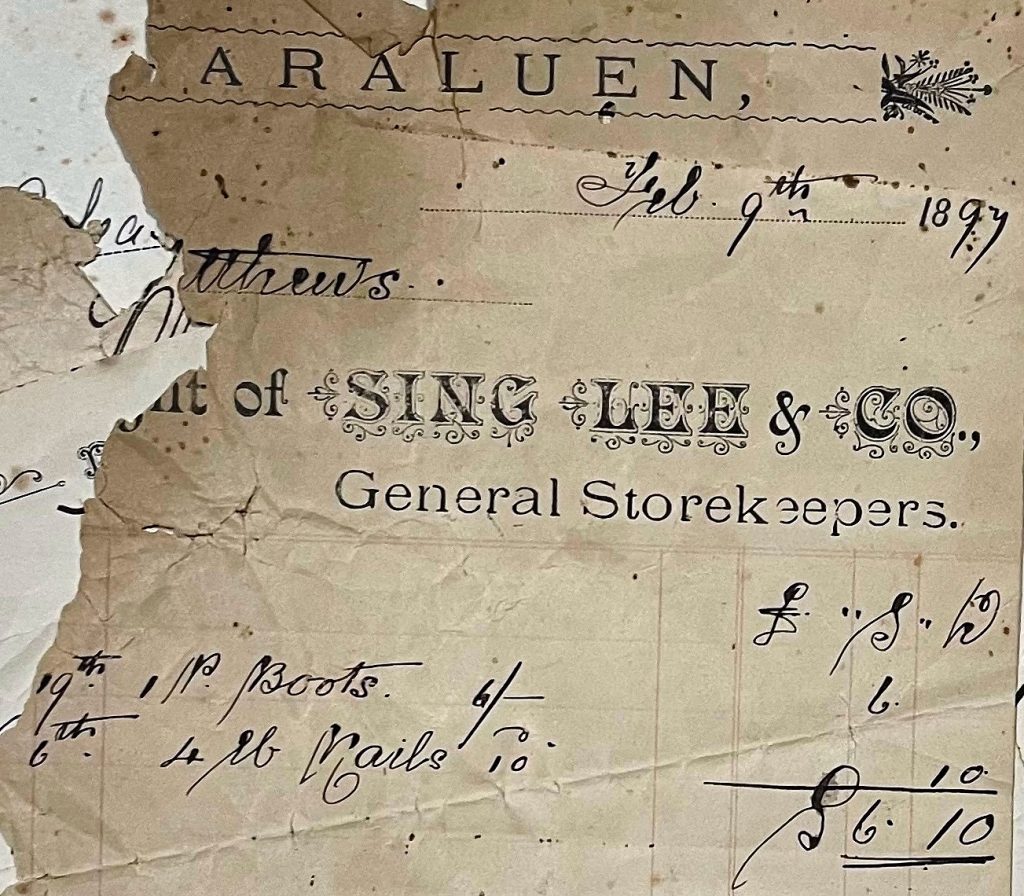 ARALUEN,
Feb. 9th 1897
tthews.
nt of SING LEE & CO.,
General Storekeepers.
£ " S " D
19th 1 P. Boots. 6/- 6.
6th. 4 lb Nails 10. 10.
S 6. 10